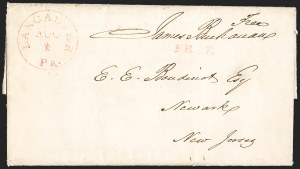 Free
James Buchanan
LANCASTER
AUG
Pa.
FREE
E. E. Boudinot Esq
Newark
New Jersey